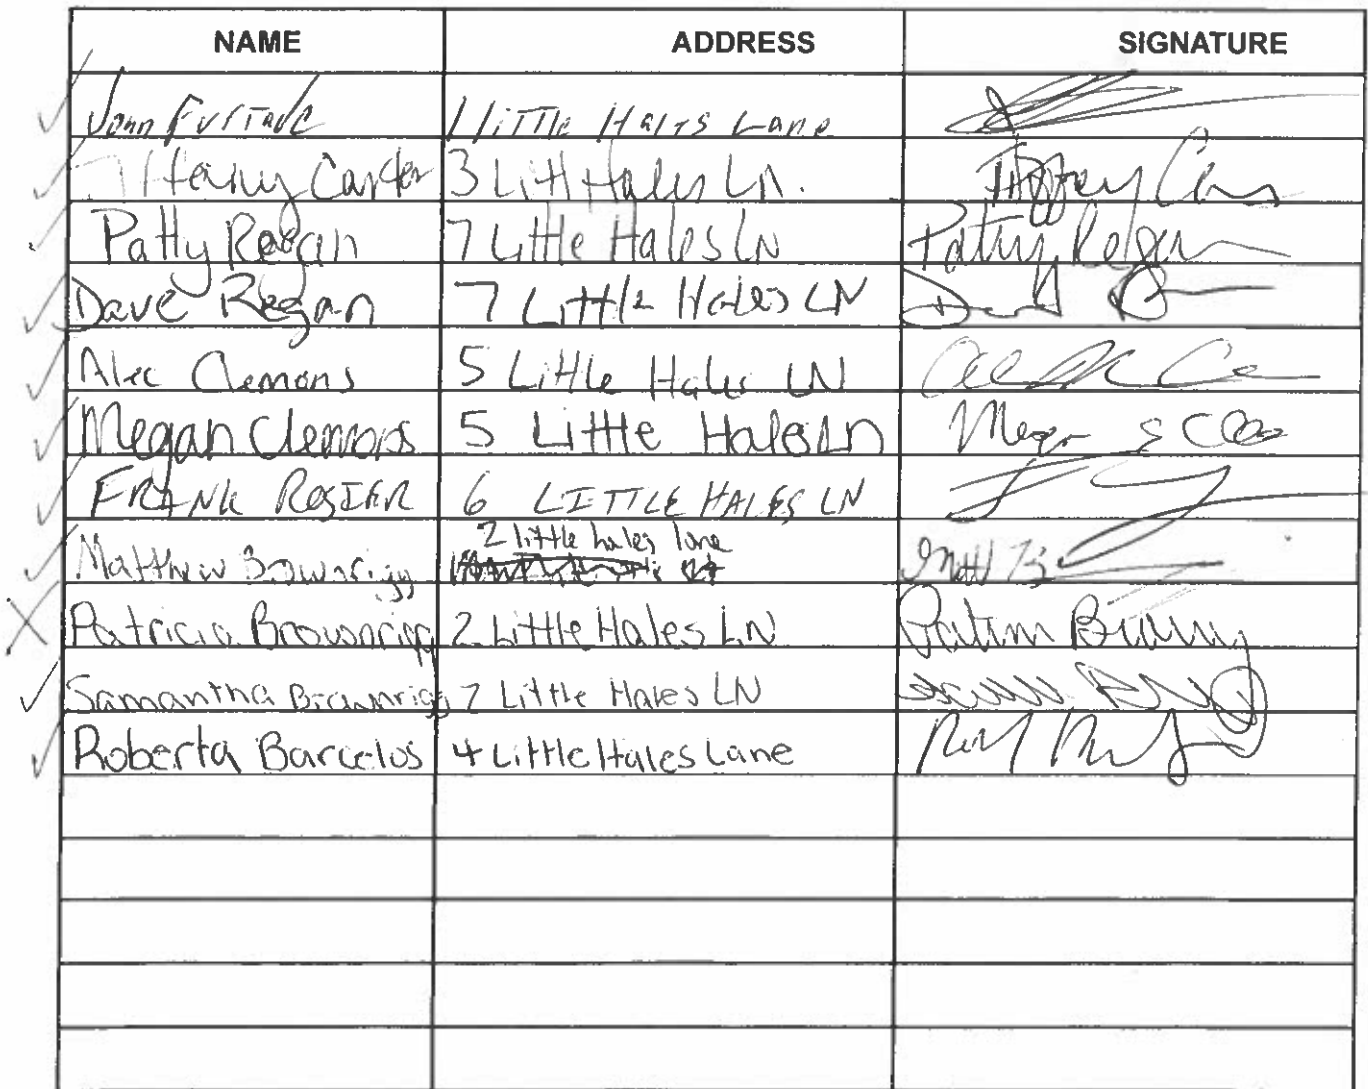 NAME ADDRESS SIGNATURE
John Furtado 1 Little Hales Lane
Tiffany Carter 3 Littl Hales LN. Tiffany
Patty Regan 7 Little Hales LN Patty Regan
Dave Regan 7 Little Hales LN
Alec Clemons 5 Little Hales LN
Megan Clemons 5 Little Hales Ln
FRANK ROSIER 6 LITTLE HALES LN
Matthew Brownrigg 2 little hales lane
Patricia Brownrigg 2 Little Hales LN
Samantha Brownrigg 2 Little Hales LN
Roberta Barcelos 4 Little Hales Lane